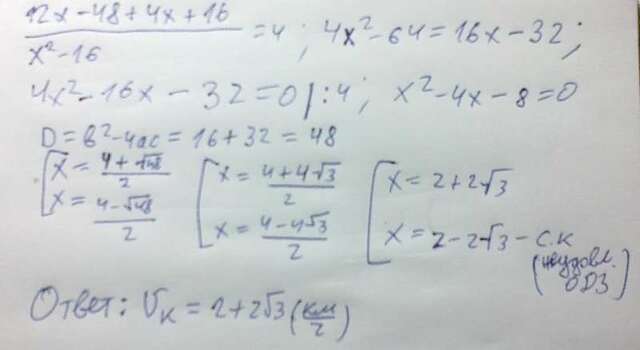 (12x-48+4x+16)/(x²-16) = 4; 4x²-64=16x-32;
4x²-16x-32=0 |:4; x²-4x-8=0
D=b²-4ac=16+32=48
[x=(4+√48)/2 [x=(4+4√3)/2 [x=2+2√3
x=(4-√48)/2 x=(4-4√3)/2 x=2-2√3-с.к
(неудовл. ОДЗ)
Ответ: Vк=2+2√3(км/г)